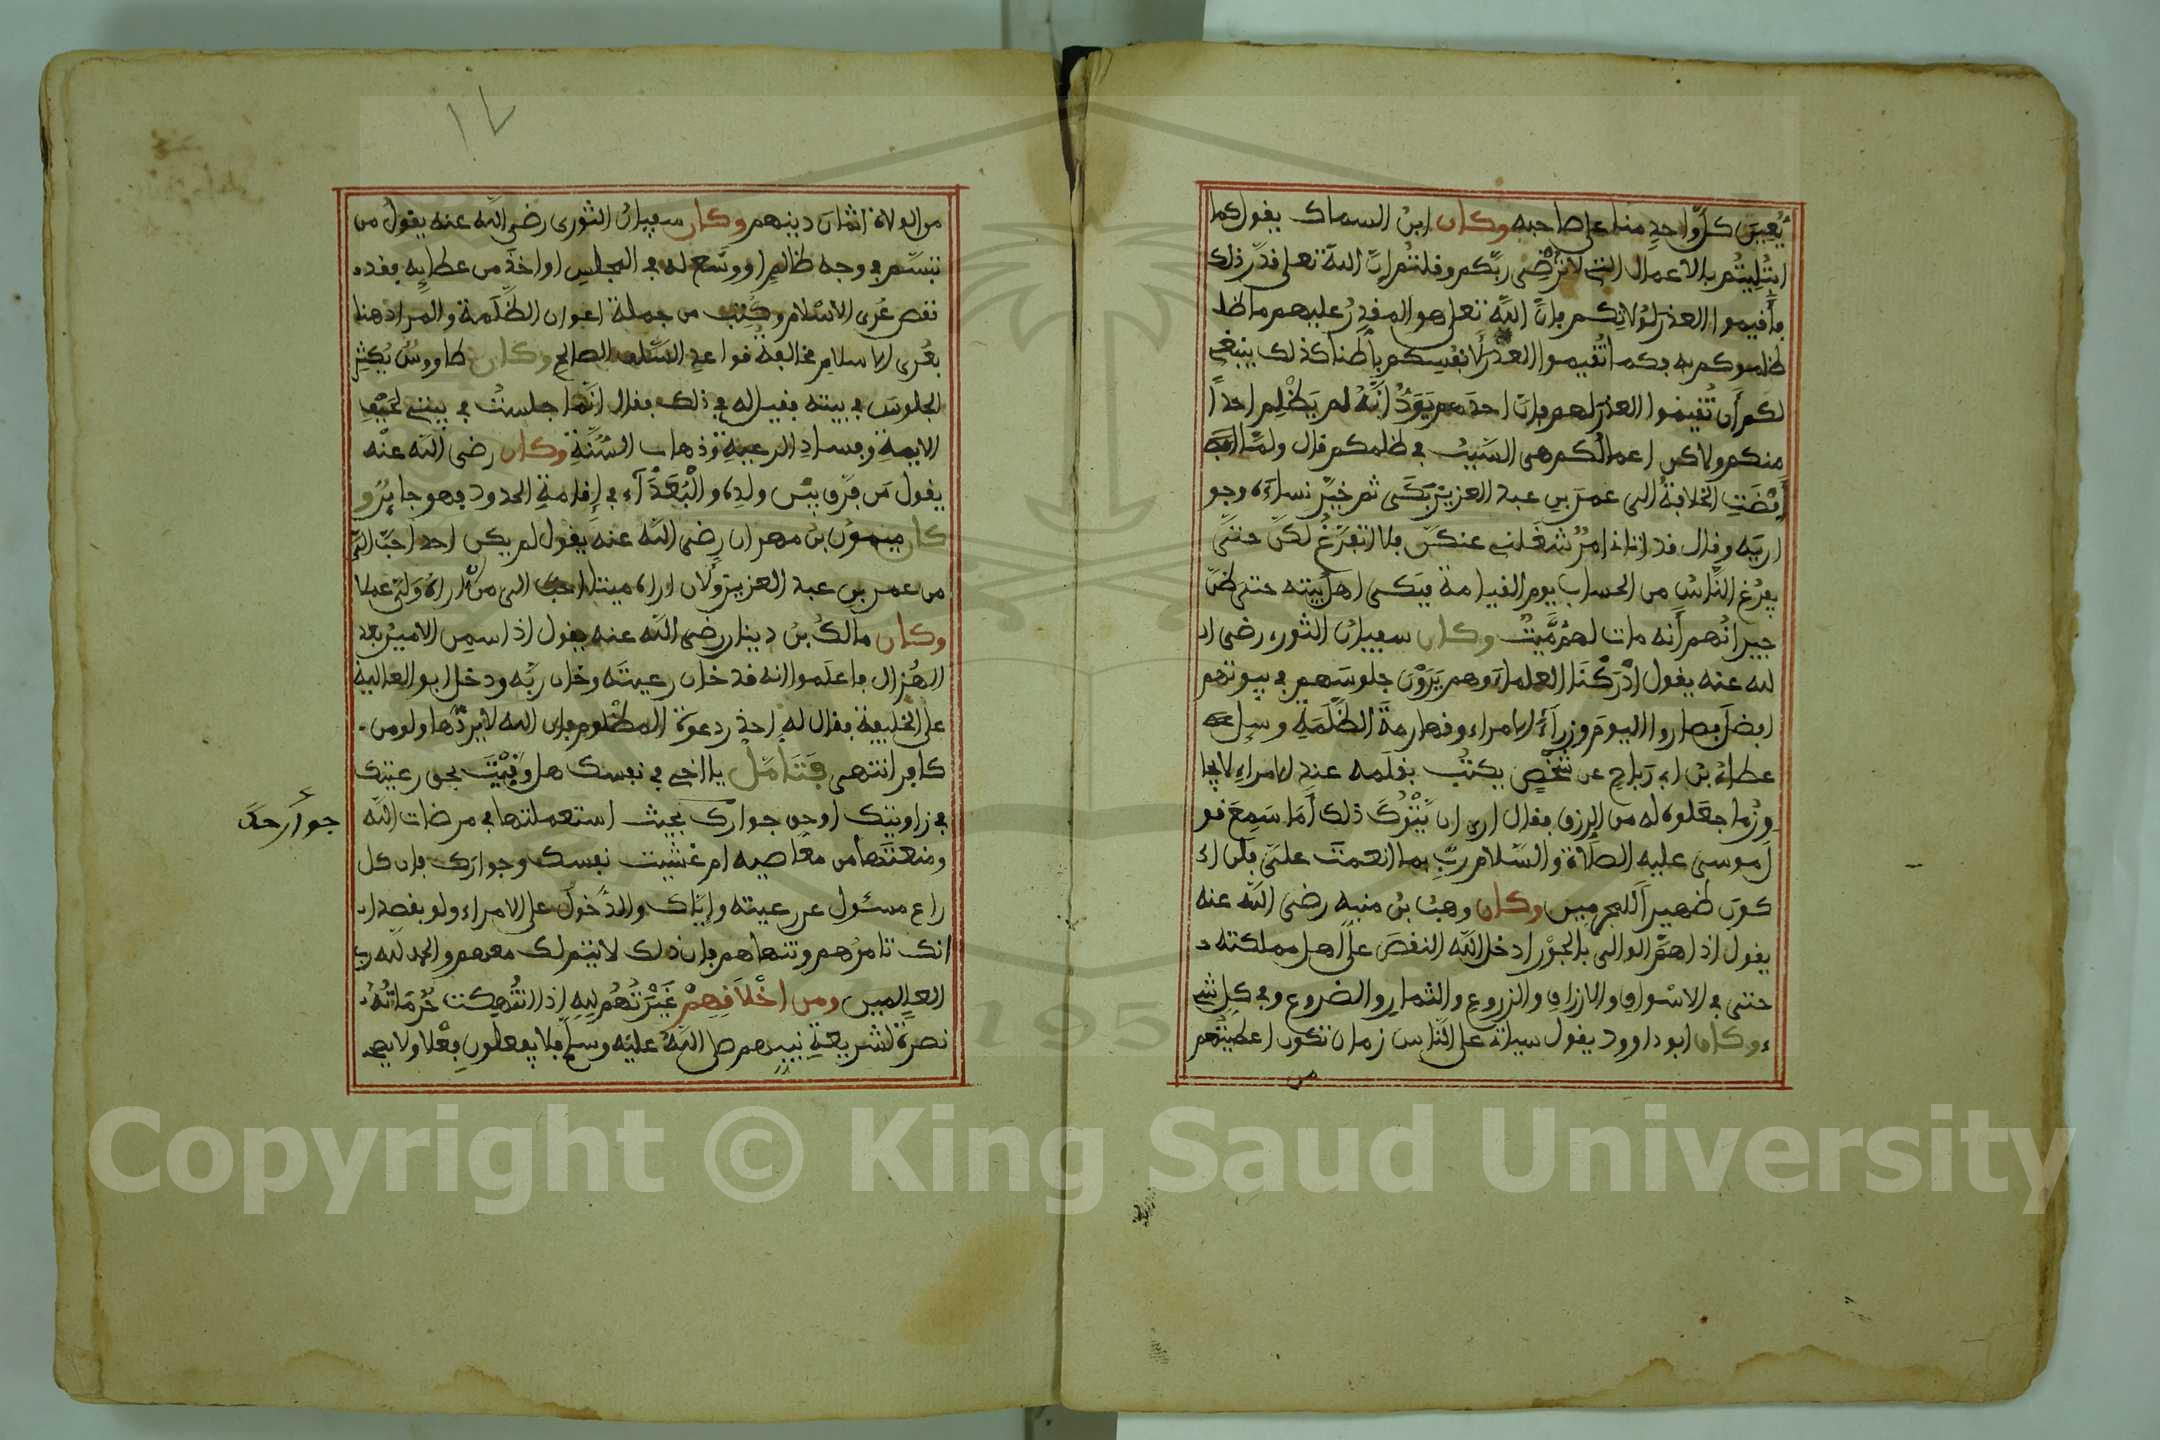 يُعِينَ كلُّ واحدٍ منا على صاحبه وكان ابن السماك يقول كما
ابتُلِيتُم بالاعمال التي لا تُرْضِى ربَّكم وقلتُم إنَّ اللهَ تعلى قدَّر ذلك
فأقيموا العذرَ لوُلاتِكم فإنَّ اللَّهَ تعلى هو المقدِرُ عليهم ما ظلـ
ظلموكم به فكما تُقيموا العذرَ لأنفسِكم باطنا كذلك ينبغى
لكم أن تُقيموا العذرَ لهم فإنَّ احدَهم يَوَدُّ انَّهُ لم يَظْلِم احدًا
منكم ولاكن اعمالُكم هى السَّببُ فى ظلمكم قال ولمَّا
أفْضَتِ الخلافةُ الى عمرَ بنِ عبد العزيز بَكَى ثم خيَّر نساءَه وجو
اريَه وقال قد اتانى امرٌ شغلنى عنكنّ فلا اتفرَّغُ لكنَّ حتى
يفرُغ النَّاسُ من الحساب يوم القيامة فبكى اهلُ بيته حتى ظنّ
جيرانُهم أنه مات لهم ميّتٌ وكان سفيان الثورى رضى ا
لله عنه يقول ادْرَكْنَا العلماءَ وهم يَرَوْنَ جلوسَهم فى بيوتهم
افضلَ فصاروا اليومَ وزراءَ الامراء وقهارمةَ الظَّلَمةِ وسئل
عطاءُ بنُ ابى رَباحٍ عن شَخْصٍ يكتُب بقلَمه عند الامراءِ لا يجا
وِزُ ما جعلوه له من الرزق فقال ارى ان يَتْرُكَ ذلك أمَا سَمِعَ قو
لَ موسى عليه الصلاة والسَّلام ربِّ بما انعمتَ علىَّ فلن ا
كونَ ظهيرًا للمجرمين وكان وهبُ بنُ منبه رضى الله عنه
يقول اذا همَّ الوالى بالجوْر ادخلَ اللَّه النقصَ على اهل مملكته
حتى فى الاسْواقِ والارزاقِ والزروعِ والثمارِ والضروع وفى كلِّ شى
ء وكان ابو داوود يقول سيأتى على النَّاس زمان تكون اعطيتُهم
من
١٧
من الولاة اثمانَ دينهم وكان سفيانُ الثورى رضى اللّه عنه يقولُ من
تبسَّم فى وجه ظالمٍ او وسَّع له فى المجلس او اخذَ من عطايِه فقد
نقض عُرى الاسْلام وكُتِب من جملة اعوان الظَّلَمة والمراد هنا
بعُرى الاسلامِ مخالفةُ قواعدِ السَّلف الصالح وكان طاووسُ يُكثِرُ
الجلوسَ فى بيته فقيل له فى ذلك فقال انَّما جلستُ فى بيتى لحَيْفِ
الايمةِ وفسادِ الرعيةِ وذهاب السُّنَّةِ وكان رضى اللّه عنْه
يقول مَن فرَّق بيْن ولدِه والْبُعَدَآءِ فى إقامةِ الحدود فهو جايِرٌ و
كان ميمونُ بن مهران رضى اللَّه عنه يقول لم يكن احد أحبّ الىَّ
من عمر بن عبد العزيز ولَأن اراه ميتا احبّ الى من أن اراهُ ولِىَ عملا
وكان مالكُ بنُ دينار رضى اللَّه عنه يقول اذا سمِن الاميرُ بعد
الهُزال فاعلَموا انه قد خان رعيتَه وخان ربَّه ودخل ابو العالية
على الخليفة فقال له احذر دعوةَ المظلوم فإن الله لا يردُّها ولو من
كافرٍ انتهى فَتَأمَّلْ يا اخى فى نفسك هل وَفَّيْتَ بحق رعيتك
فى زاويتك او حق جوارك بحيث استعملتها فى مرضات اللّه
جوارحك
ومنعتَها من معاصيه ام غشيت نفسك وجوارك فإن كل
راع مسئول عن رعيته وإيَّاك والدُّخولَ على الامراء ولو بقصدِ
انك تامرُهم وتنهاهم فإن ذلك لا يتم لك معهم والحمد لله رب
العالمين ومن اخْلاقِهِمْ غَيْرَتُهُم لِلهِ اذا انتُهِكت حُرمَاتُهُ
نصرةً لشريعةِ نبيهم صلى اللَّهُ عليْه وسلَّم فلا يفعلون فِعْلا ولا يصحـ